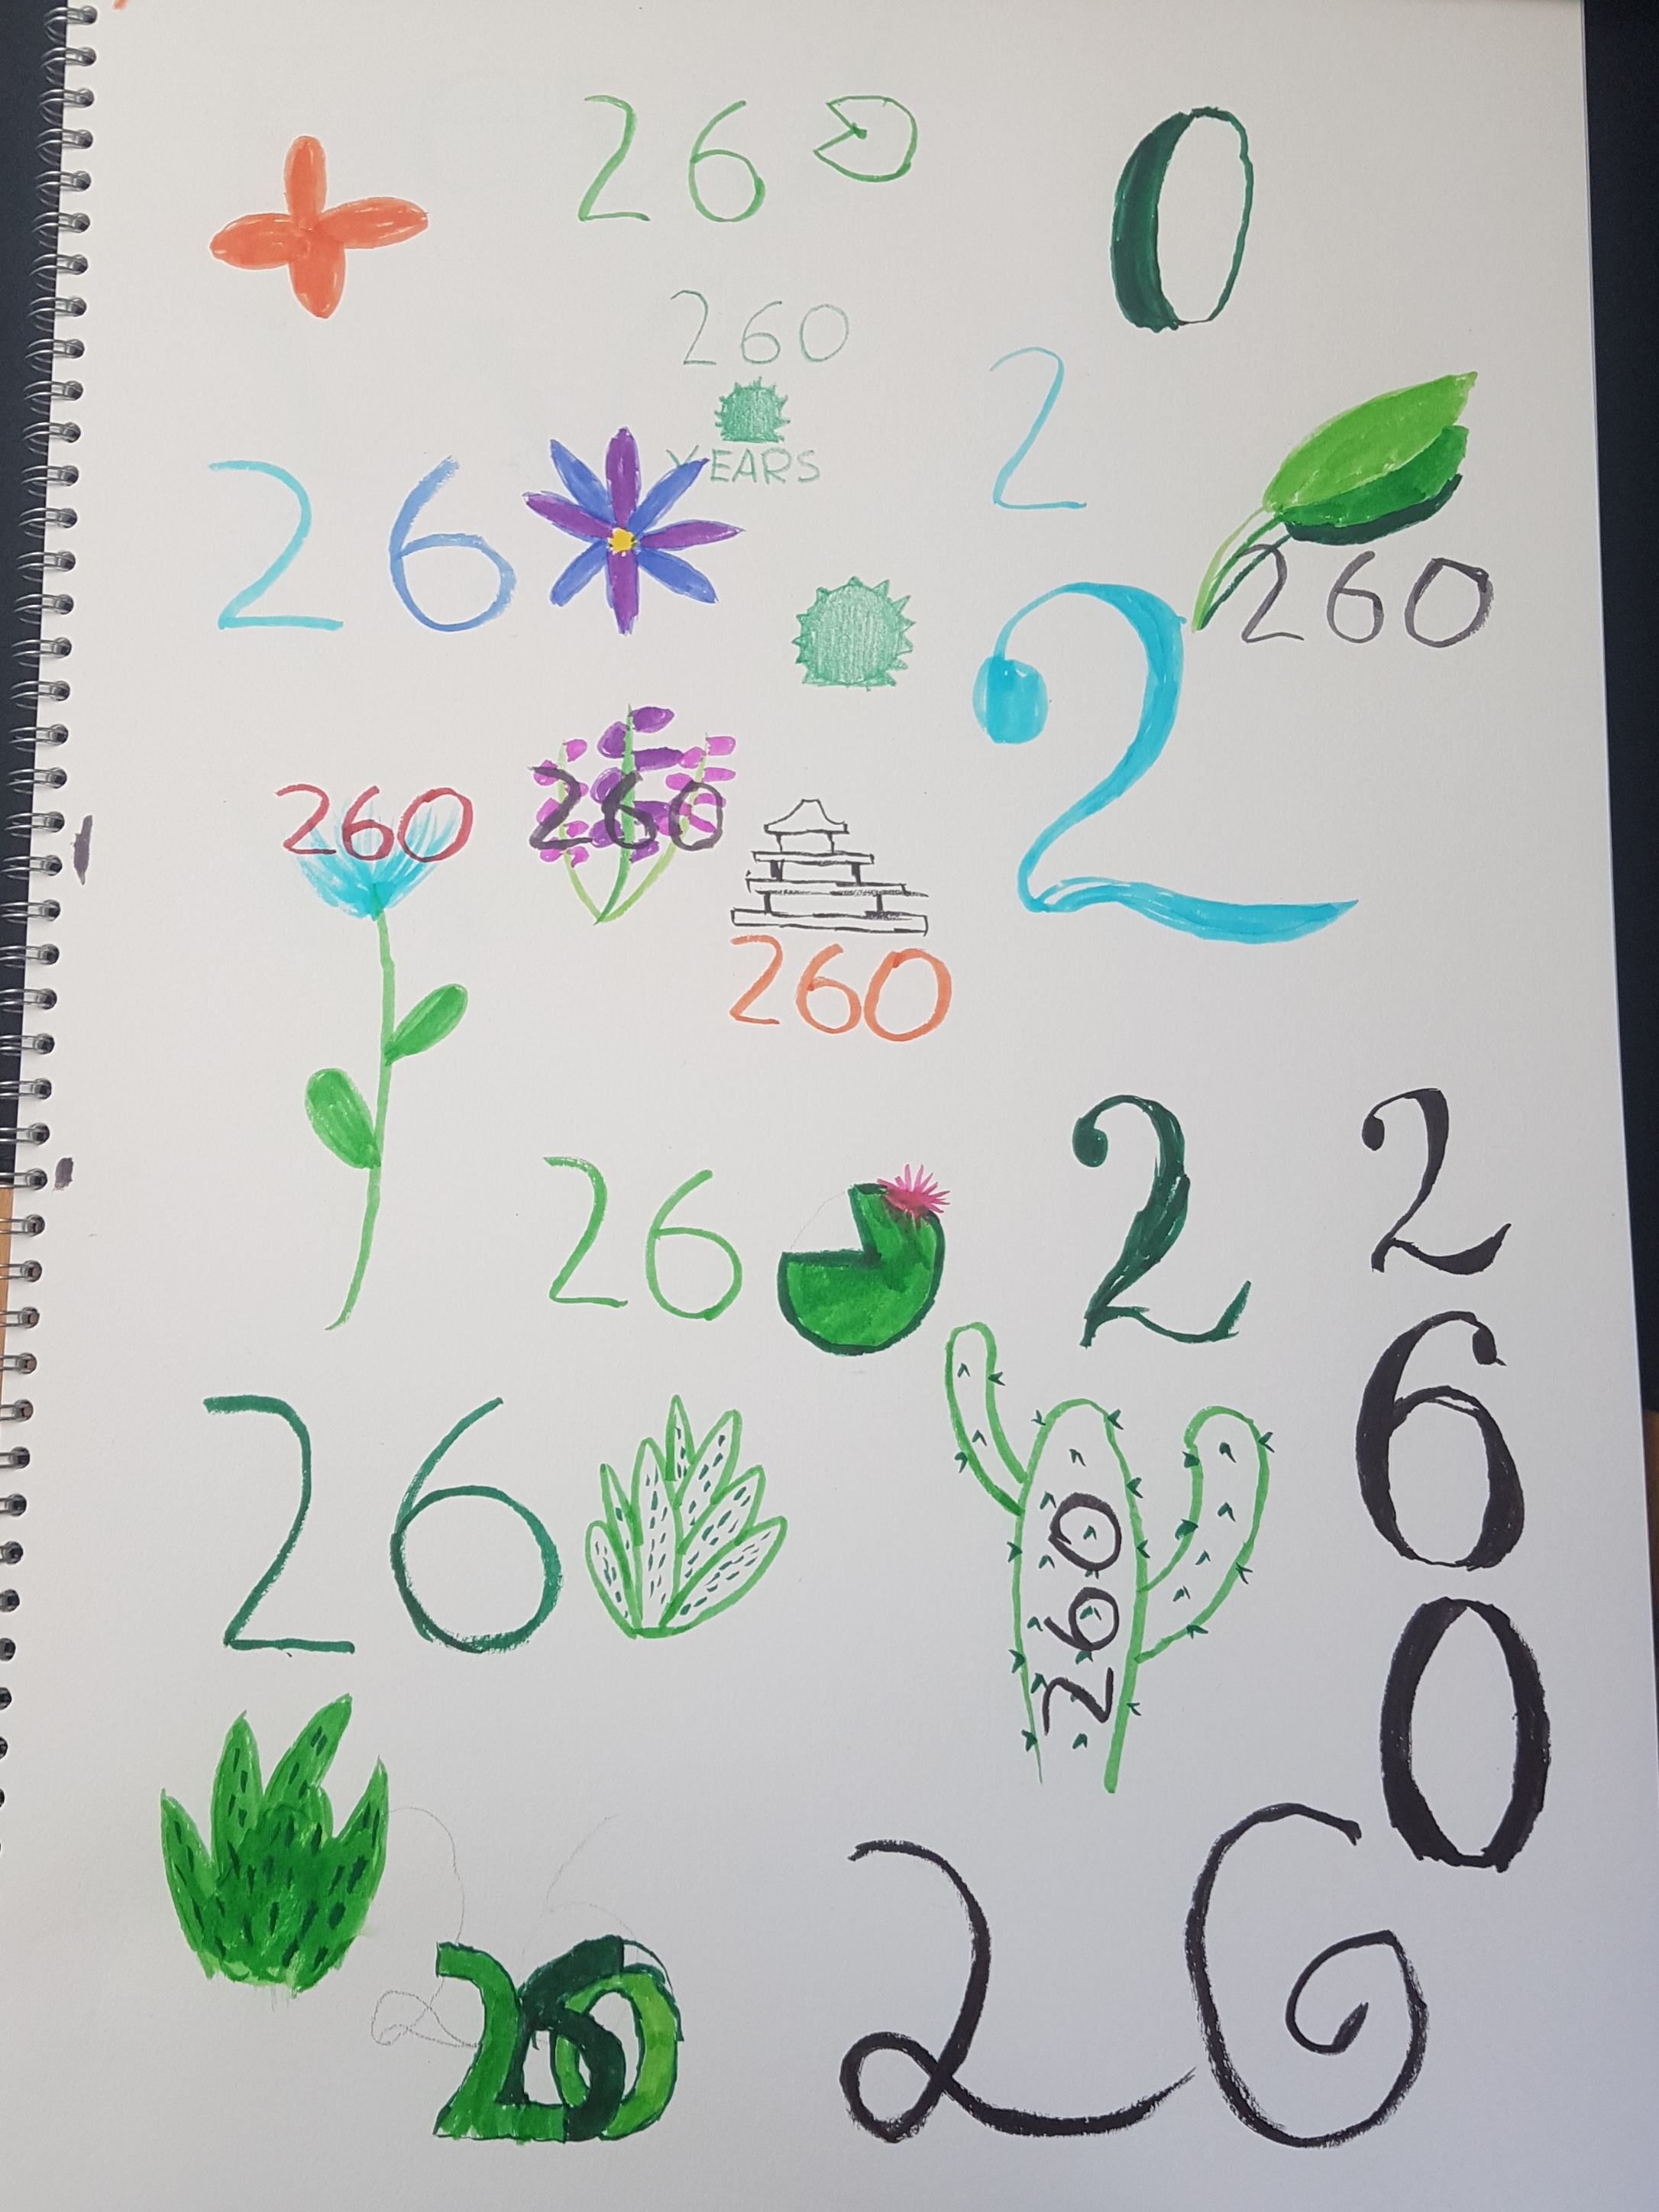 26
0
260
YEARS
2
26
260
2
260
260
260
2
2
26
6
26
260
0
260
26